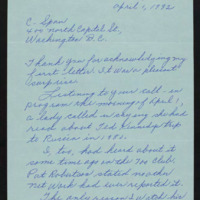 April 1, 1992
C. Span
400 North Capitol St,
Washington D.C.
Thank you for acknowledging my
first letter. It was a pleasant
surprise.
Listening to your call-in
program the morning of April 1,
a lady called in saying she had
read about Ted Kennedy's trip
to Russia in
I, too, had heard about it
some time ago on the 700 Club.
Pat Robertson stated no other
Net Work had ever reported it.
The only reason I watch the